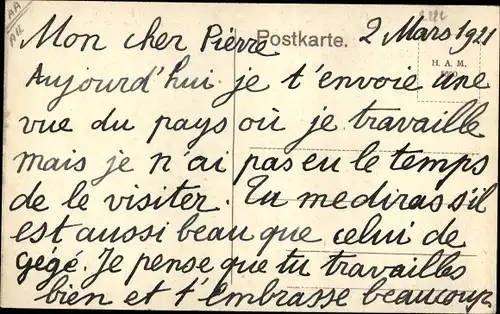 AA
Mon cher Pierre Postkarte. 2 Mars 1921
H. A. M.
Aujourd'hui je t'envoie une
vue du pays où je travaille
mais je n'ai pas eu le temps
de le visiter. Tu me diras s'il
est aussi beau que celui de
gégé. Je pense que tu travailles
bien et t'embrasse beaucoup